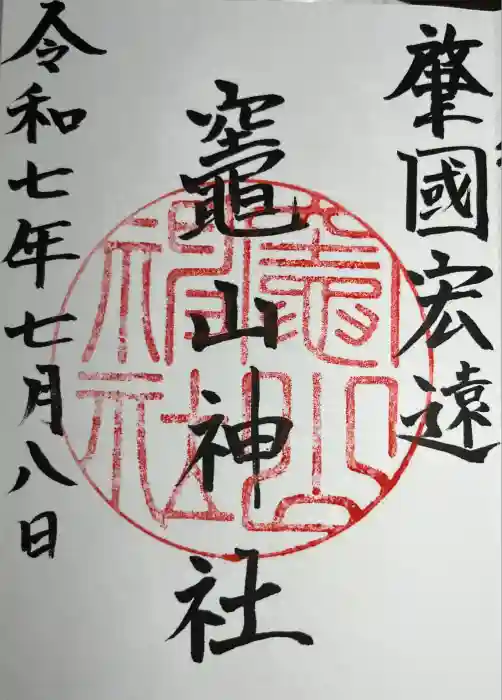 肇國宏遠
竈山神社
令和七年七月八日
竈山神社